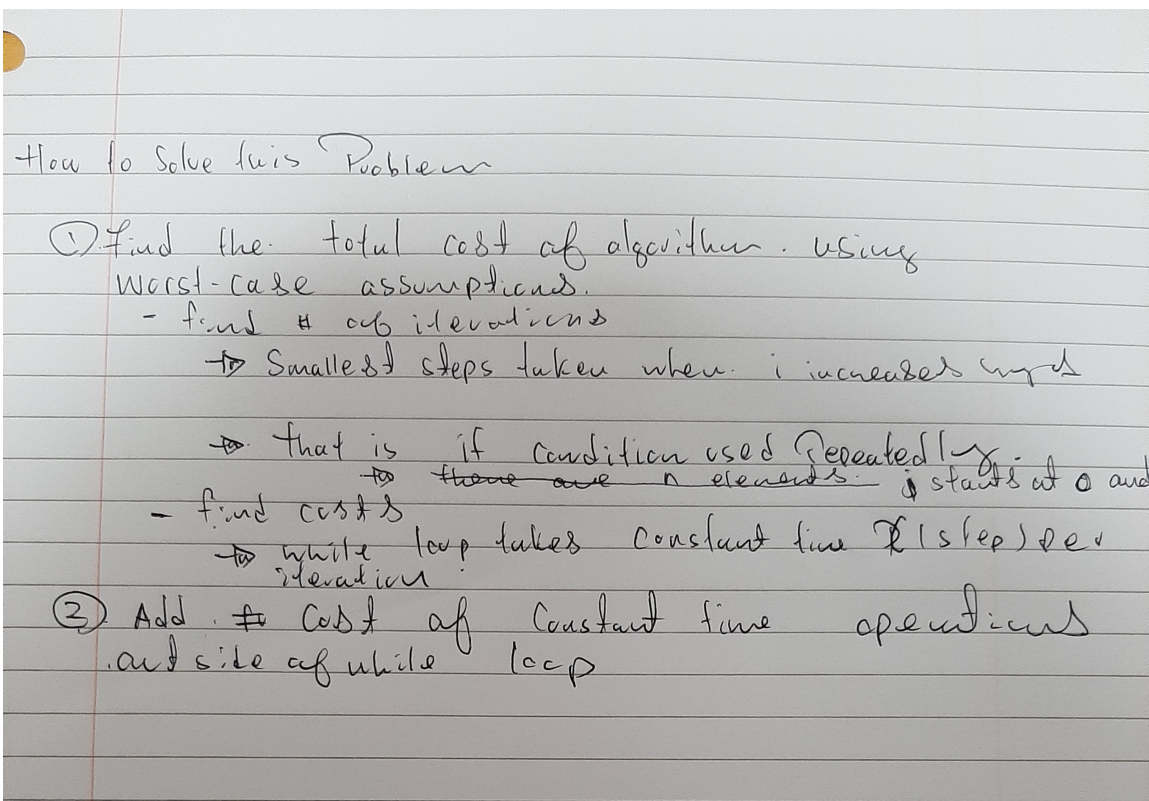 How to Solve this Problem
① find the total cost of algorithm using
worst-case assumptions.
- find # of iterations
→ Smallest steps taken when i increases
→ that is if condition used repeatedly.
→ there are n elements. i starts at 0 and
- find costs
→ while loop takes constant time (step) per
iteration
② Add cost of constant time operations
outside of while loop